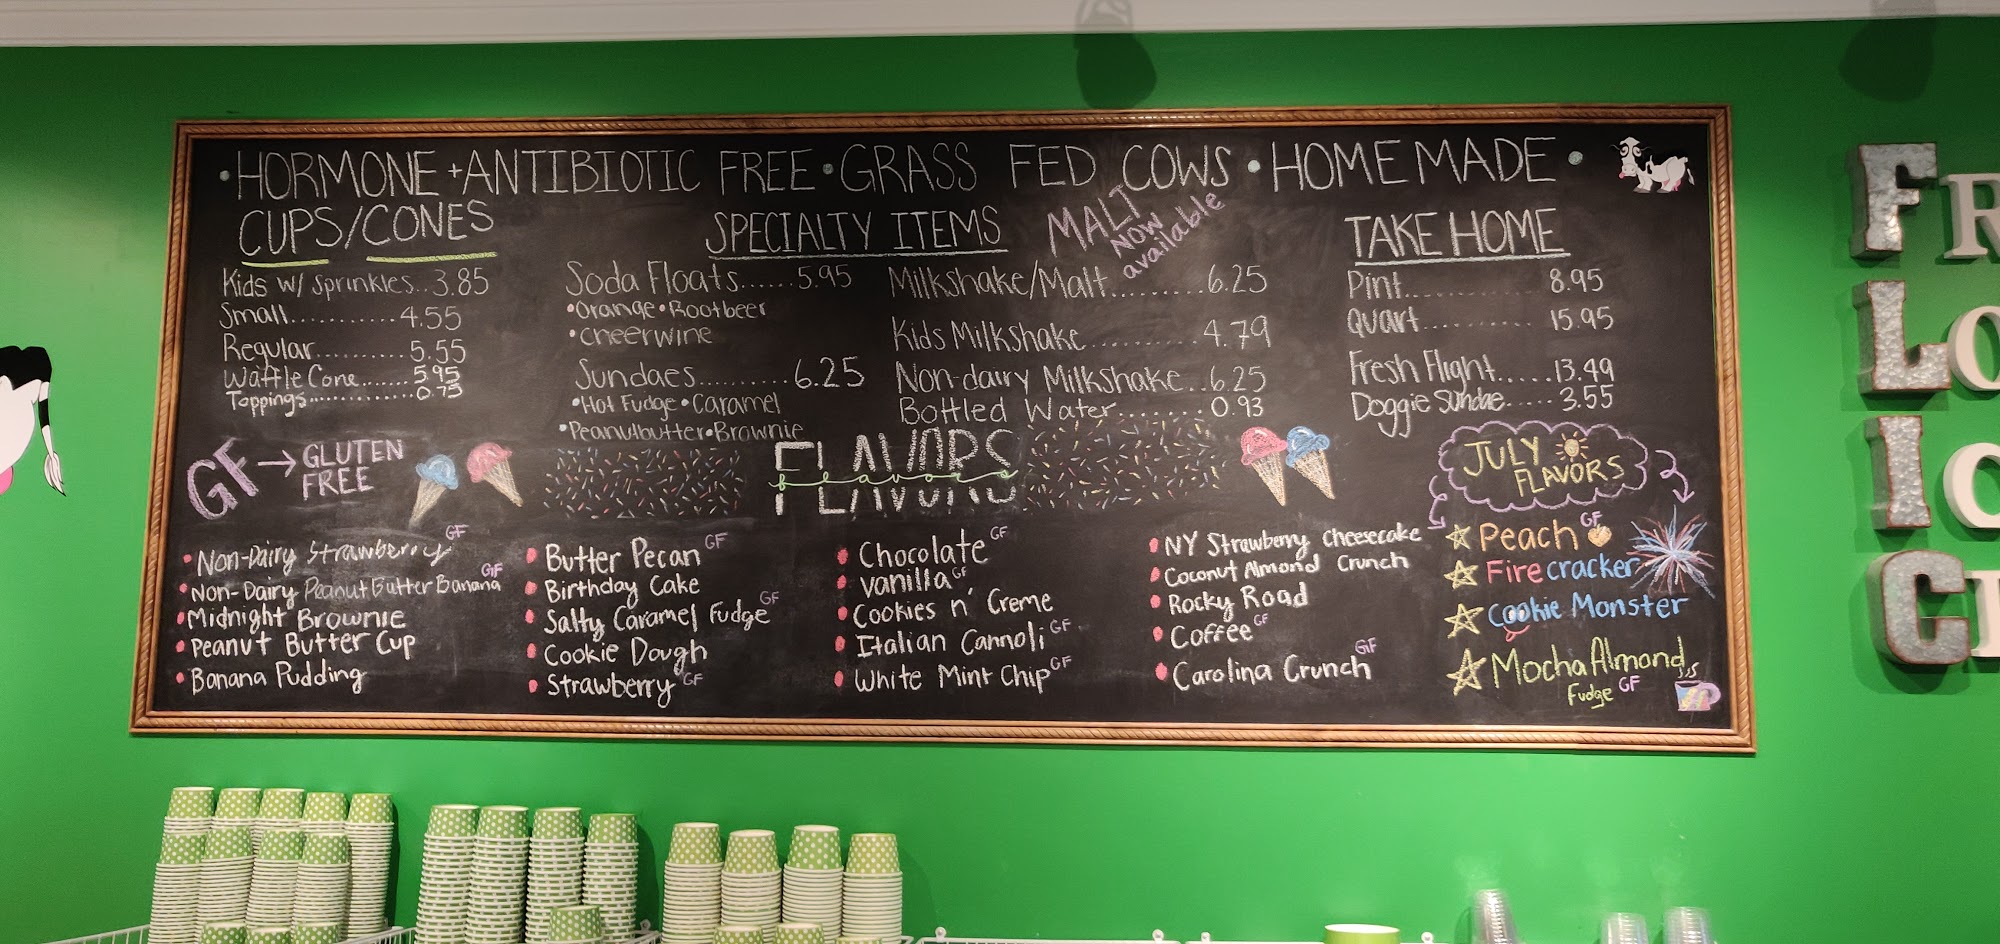 • HORMONE + ANTIBIOTIC FREE • GRASS FED COWS • HOMEMADE •
CUPS/CONES
Kids w/ Sprinkles..3.85
Small..........4.55
Regular..........5.55
Waffle Cone......5.95
Toppings............0.75
SPECIALTY ITEMS
MALT
NOW
available
Soda Floats......5.95
•Orange •Rootbeer
•cheerwine
Sundaes.........6.25
•Hot Fudge •Caramel
•Peanutbutter •Brownie
Milkshake/Malt.........6.25
Kids Milkshake..........4.79
Non-dairy Milkshake..6.25
Bottled Water.......0.93
TAKE HOME
Pint............8.95
Quart...........15.95
Fresh Flight.....13.49
Doggie Sundae.....3.55
GF → GLUTEN
FREE
FLAVORS
flavors
• Non-Dairy Strawberry GF
• Non-Dairy Peanut Butter Banana GF
• Midnight Brownie
• Peanut Butter Cup
• Banana Pudding
• Butter Pecan GF
• Birthday Cake
• Salty Caramel Fudge GF
• Cookie Dough
• Strawberry GF
• Chocolate GF
• Vanilla GF
• Cookies n' Creme
• Italian Cannoli GF
• White Mint Chip GF
• NY Strawberry Cheesecake
• Coconut Almond Crunch
• Rocky Road
• Coffee GF
• Carolina Crunch GF
JULY
FLAVORS
Peach GF
Firecracker
Cookie Monster
Mocha Almond
Fudge GF
FR
LO
IC
C